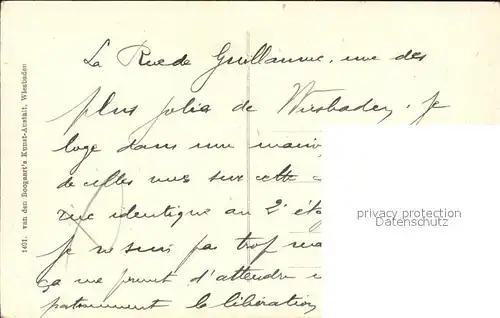 La Rue de Guillaume, une des
plus jolie de Wiesbaden. Je
loge dans une
de celles vues sur cette
rue identique au 2e
Je ne suis pas trop
ça me permet d'attendre
patiemment la libération
1401. van den Boogaart's Kunst-Anstalt, Wiesbaden
privacy protection
Datenschutz